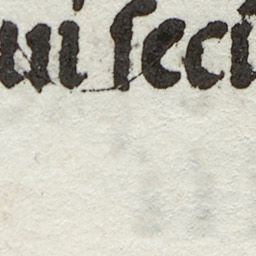 ui feci